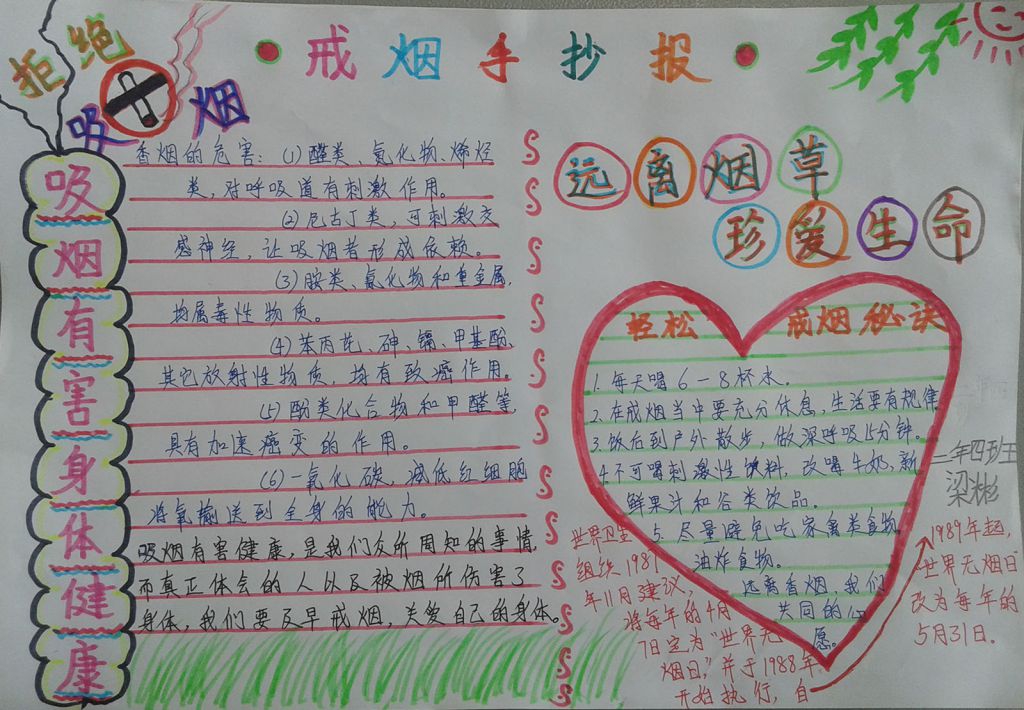 拒绝
吸烟
戒烟手抄报
吸烟有害身体健康
香烟的危害:(1)醛类、氮化物、烯烃
类,对呼吸道有刺激作用。
(2)尼古丁类,可刺激交
感神经,让吸烟者形成依赖。
(3)胺类、氰化物和重金属,
均属毒性物质。
(4)苯丙芘、砷、镉、甲基酚、
其它放射性物质,均有致癌作用。
(5)酚类化合物和甲醛等,
具有加速癌变的作用。
(6)一氧化碳,减低红细胞
将氧输送到全身的能力。
吸烟有害健康,是我们众所周知的事情,
而真正体会的人以及被烟所伤害了
身体,我们要及早戒烟,关爱自己的身体。
远离烟草
珍爱生命
轻松 戒烟秘诀
1.每天喝6-8杯水。
2.在戒烟当中要充分休息,生活要有规律
3.饭后到户外散步,做深呼吸15分钟。
4.不可喝刺激性饮料,改喝牛奶、新
鲜果汁和谷类饮品。
5.尽量避免吃家禽类食物,
油炸食物。
远离香烟,我们
共同的心
愿。
二年四班
梁彬
世界卫生
组织1987
年11月建议,
将每年的4月
7日定为“世界无
烟日”,并于1988年
开始执行,自
1989年起,
世界无烟日
改为每年的
5月31日。